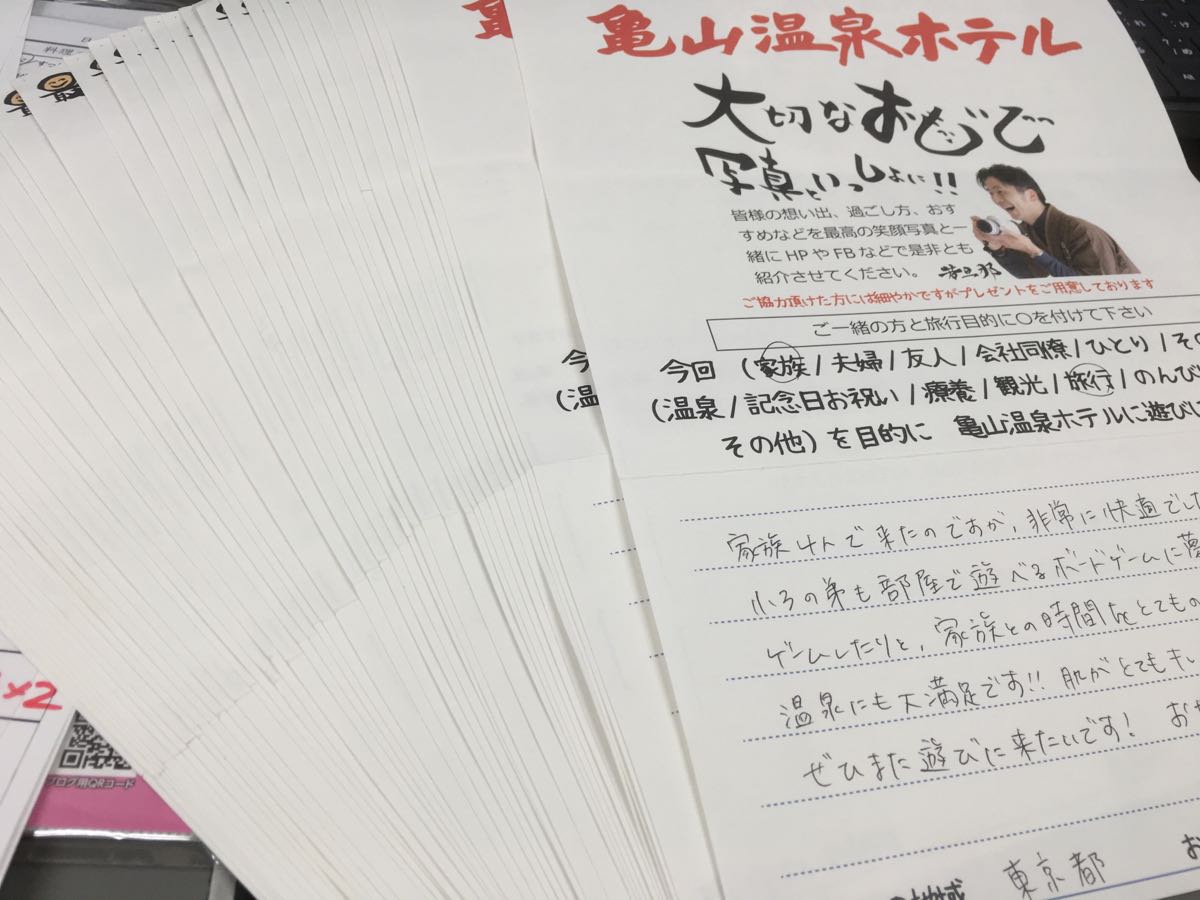 亀山温泉ホテル
大切なおもいで
写真といっしょに!!
皆様の想い出、過ごし方、おす
すめなどを最高の笑顔写真と一
緒にHPやFBなどで是非とも
紹介させてください。 若旦那
ご協力頂けた方には細やかですがプレゼントをご用意しております
ご一緒の方と旅行目的に〇を付けて下さい
今回 (家族/夫婦/友人/会社同僚/ひとり/その
(温泉/記念日お祝い/療養/観光/旅行/のんび
その他)を目的に 亀山温泉ホテルに遊びに
家族4人で来たのですが、非常に快適でした
小3の弟も部屋で遊べるボードゲームに夢
ゲームしたりと、家族との時間をとてもの
温泉にも大満足です!! 肌がとてもキレ
ぜひまた遊びに来たいです! お
地域 東京都 お
今
(温
料理
×2
ブログ用QRコード